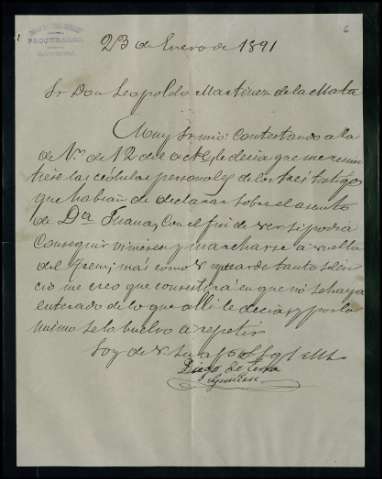 PROCURADOR
6
23 de Enero de 1891
Sr Don Leopoldo Martinez de la Mata
Muy Sr mio: Contestando a la
de V. de 12 del actl, le decia que me remi
tiese las cedulas personales de los tres testigos
que habian de declarar sobre el asunto
de Da. Juana, con el fin de ver si podia
Conseguir viniesen y marcharse a vuelta
del tren; mas como V. guarde tanto silen
cio me creo que consistirá en que no se haya
enterado de lo que alli le decia, y por lo
mismo se lo vuelvo a repetir
Soy de V.
Diego